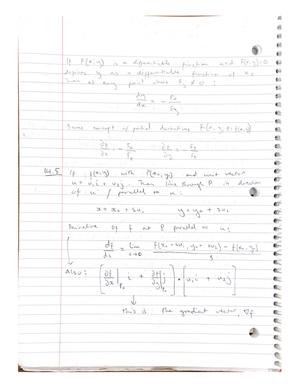 If F(x,y) is a differentiable function and F(x,y)=0
defines y as a differentiable function of x,
then at any point where Fy ≠ 0 :
dy/dx = - Fx/Fy
Same concept w/ partial derivatives F(x, y, z)
∂z/∂x = - Fx/Fz ∂z/∂y = - Fy/Fz
14.5 If f(x,y) with P(x₀, y₀) and unit vector
u = u₁i + u₂j. Then line through P in direction
of u / parallel to u :
x = x₀ + su₁ y = y₀ + su₂
Derivative of f at P parallel to u :
df/ds = lim s→0 f(x₀ + su₁, y₀ + su₂) - f(x₀, y₀) / s
Also : [∂f/∂x|P₀ i + ∂f/∂y|P₀ j] • [u₁i + u₂j]
this is the gradient vector, ∇f